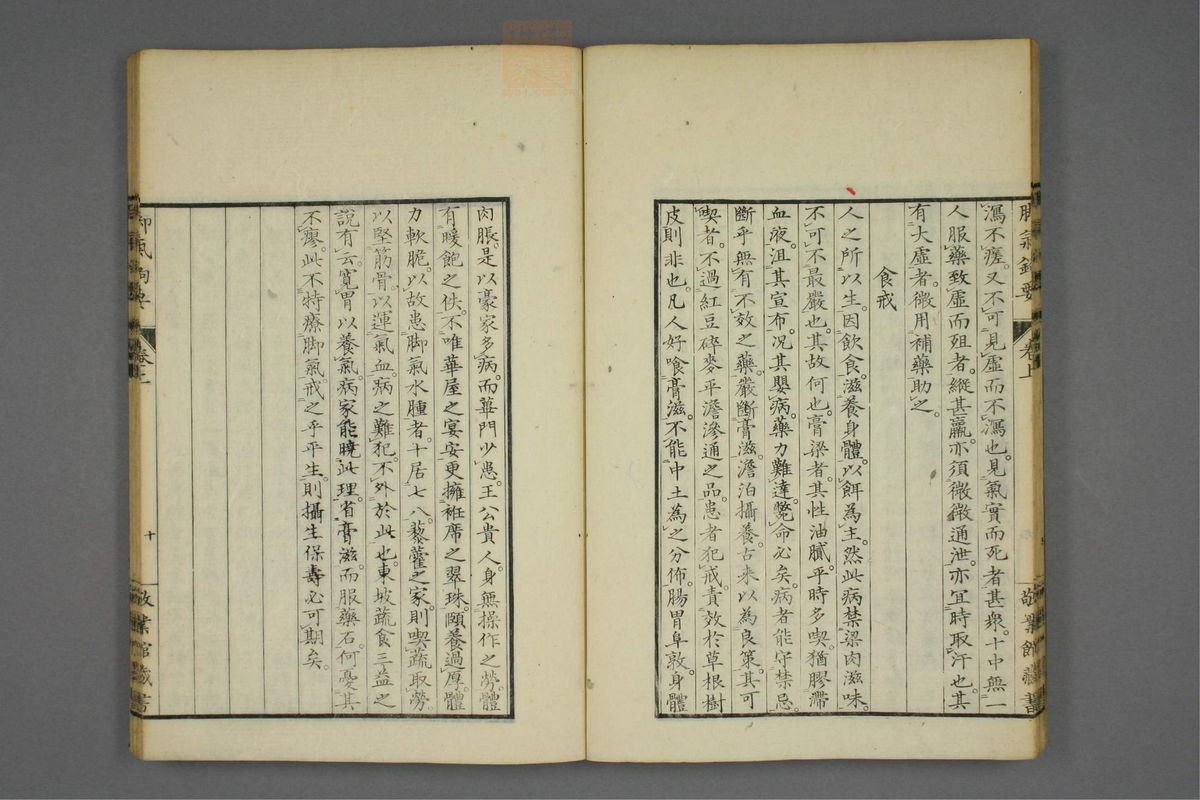 脚氣鈎要 卷上 敬業館藏書
瀉不瘥。又不可見虛而不瀉也。見氣實而死者甚衆。十中無一
人服藥致虛而殂者。縱甚羸。亦須微微通泄。亦宜時取汗也。其
有大虛者。微用補藥助之。
食戒
人之所以生。因飲食。滋養身體。以餌為主。然此病禁梁肉滋味。
不可不最嚴也。其故何也。膏梁者。其性油膩。平時多喫。猶膠滯
血液。沮其宣布。况其嬰病。藥力難達。斃命必矣。病者能守禁忌。
斷乎無有不效之藥。嚴斷膏滋。澹泊攝養。古来以為良策。其可
喫者。不過紅豆碎麥平澹滲通之品。患者犯戒。責效於草根樹
皮則非也。凡人好喰膏滋。不能中土為之分佈。腸胃阜敦。身體
肉脹。是以豪家多病。而蓽門少患。王公貴人。身無操作之勞。體
有暖飽之佚。不唯華屋之宴安。更擁袵席之翠珠。頤養過厚。體
力軟脆。以故患脚氣水腫者。十居七八。藜藿之家。則喫蔬取勞。
以堅筋骨。以運氣血。病之難犯。不外於此也。東坡蔬食三益之
說有云。寬胃以養氣。病家能曉此理。省膏滋。而服藥石。何憂其
不瘳。此不特療脚氣。戒之乎平生。則攝生保壽必可期矣。
卷上 十 敬業館藏書